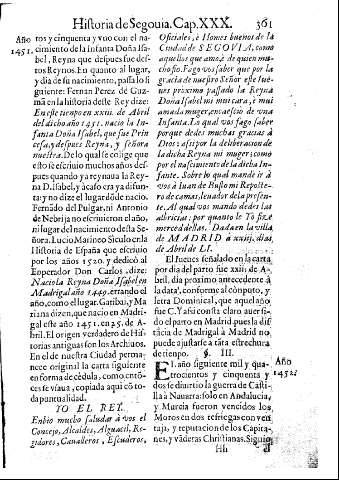 Historia de Segouia. Cap. XXX. 361
Año
1451.
tos y cinquenta y vno con el na-
cimiento de la Infanta Doña Isa-
bel, Reyna que despues fue des-
tos Reynos. En quanto al lugar,
y dia de su nacimiento, passa lo si
guiente: Fernan Perez de Guz-
mà en la historia deste Rey dize:
En este tiempo en xxiii. de Abril
del dicho año 1451. nacio la In-
fanta Doña Isabel, que fue Prin
cesa, y despues Reyna, y señora
nuestra. De lo qual se colige que
esto se escriuio muchos años des-
pues quando ya reynaua la Rey-
na D. Isabel, y acaso era ya difun-
ta: y no dize el lugar dõde nacio.
Fernãdo del Pulgar, ni Antonio
de Nebrija no escriuieron el año,
ni lugar del nacimiento desta Se
ñora. Lucio Marineo Siculo en la
Historia de España que escriuio
por los años 1520. y dedicó al
Enperador Don Carlos, dize:
Nacio la Reyna Doña Isabel en
Madrigal año 1449. errando el
año, como el lugar. Garibai, y Ma
riana dizen, que nacio en Madri-
gal este año 1451. en 25. de A-
bril. El origen verdadero de His-
torias antiguas son los Archiuos.
En el de nuestra Ciudad perma-
nece original la carta siguiente
en forma de cedula, como entõ-
ces se vsaua, copiada aqui cõ to-
da puntualidad.
YO EL REY.
Enbio mucho saludar à vos el
Concejo, Alcaldes, Alguacil, Re-
gidores, Caualleros, Escuderos,
Oficiales, è Homes buenos de la
Ciudad de SEGOVIA, como
aquellos que amo, è de quien mu-
cho fio. Fago vos saber que por la
gracia de nuestro Señor este Iue-
ves próximo passado la Reyna
Doña Isabel mi mui cara, è mui
amada muger, encaesció de vna
Infanta. Lo qual vos fago saber
porque dedes muchas gracias à
Dios: assi por la deliberacion de
la dicha Reyna mi muger: como
por el nascimiento de la dicha In-
fante. Sobre lo qual mandè ir à
vos à Iuan de Busto mi Reposte-
ro de camas, leuador de la presen-
te. Al qual vos mando dedes las
albricias: por quanto le Yo fize
merced dellas. Dada en la villa
de MADRID à xxiij. dias
de Abril de LI.
El Iueues señalado en la carta
por dia del parto fue xxiii de A-
bril, dia proximo antecedente à
la data, conforme al cõputo, y
letra Dominical, que aquel año
fue C. Y assi consta claro auer si-
do el parto en Madrid, pues la dis
tãcia de Madrigal à Madrid no
puede ajustarse a tãta estrechura
de tiempo. §. III.
EL año siguiente mil y qua-
trocientos y cinquenta y
dos se diuirtio la guerra de Casti-
lla à Nauarra: solo en Andalucia,
y Murcia fueron vencidos los
Moros en dos refriegas con ven-
taja, y reputacion de los Capita-
nes, y vãderas Christianas. Siguio
Año
1452.
Hh el